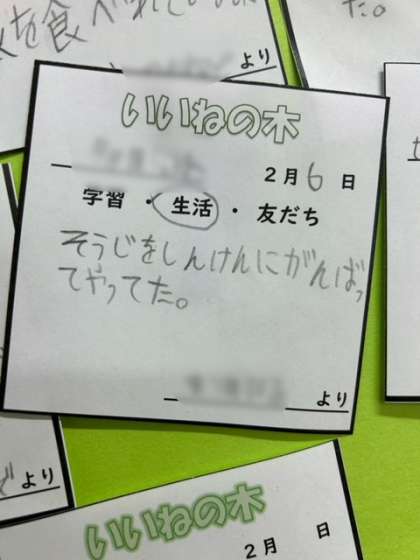 を食べれ
た。
より
いいねの木
2月6日
学習・生活・友だち
そうじをしんけんにがんばっ
てやってた。
より
より
いいねの木
2月 日